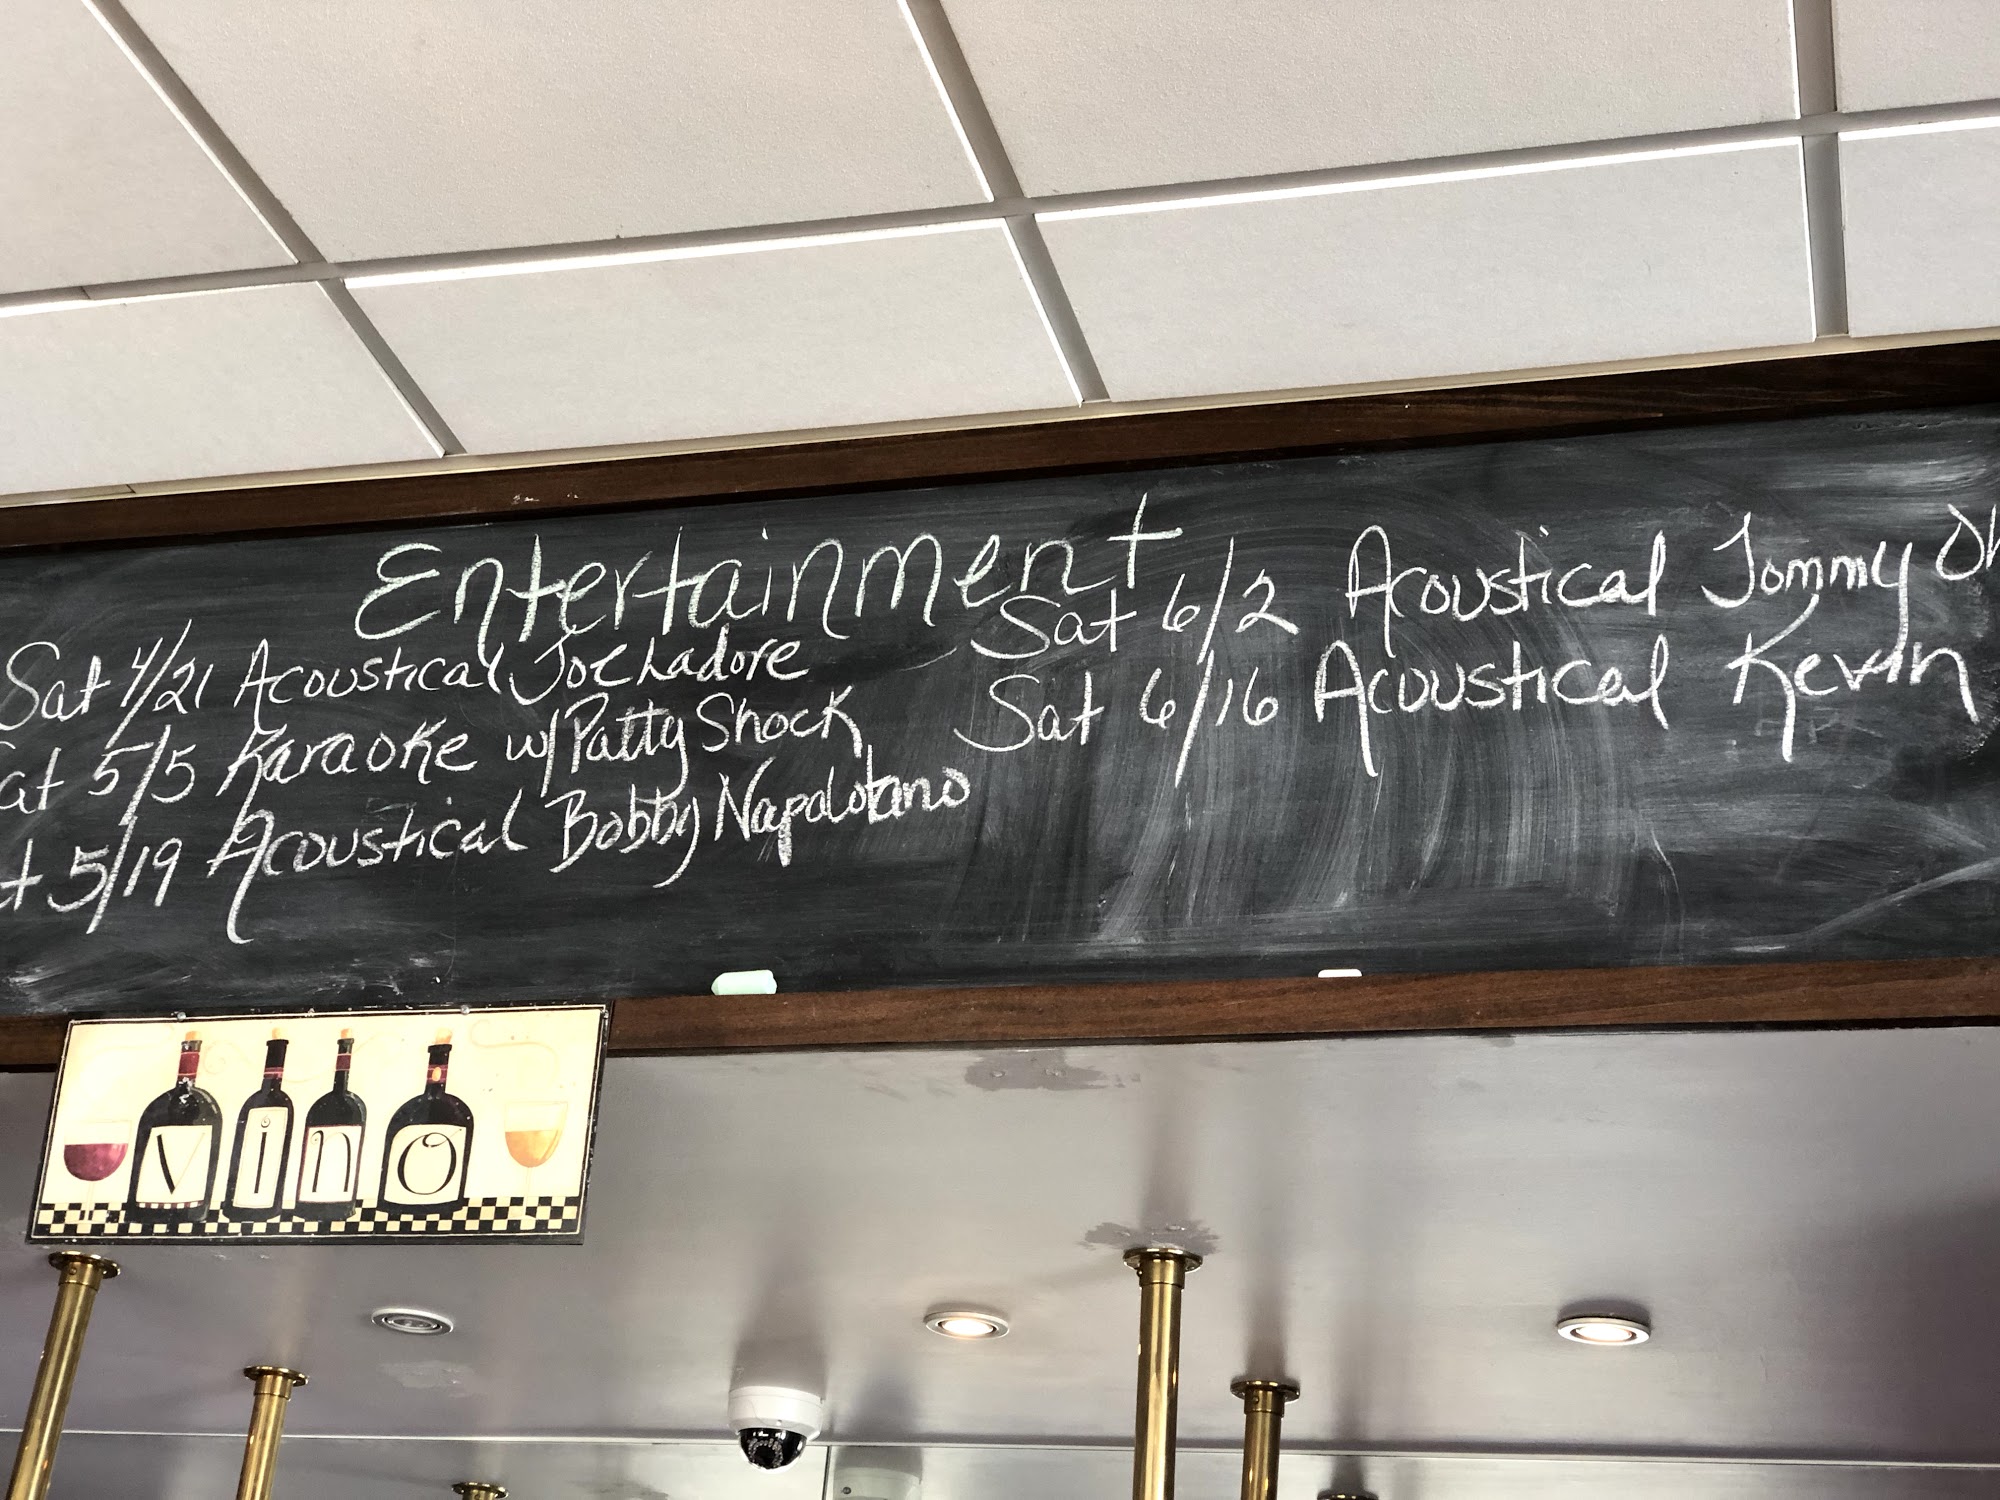 Entertainment
Sat 4/21 Acoustical Joe Ladore
at 5/5 Karaoke w/Patty Shock
t 5/19 Acoustical Bobby Napolotano
Sat 6/2 Acoustical Tommy
Sat 6/16 Acoustical Kevin
vino